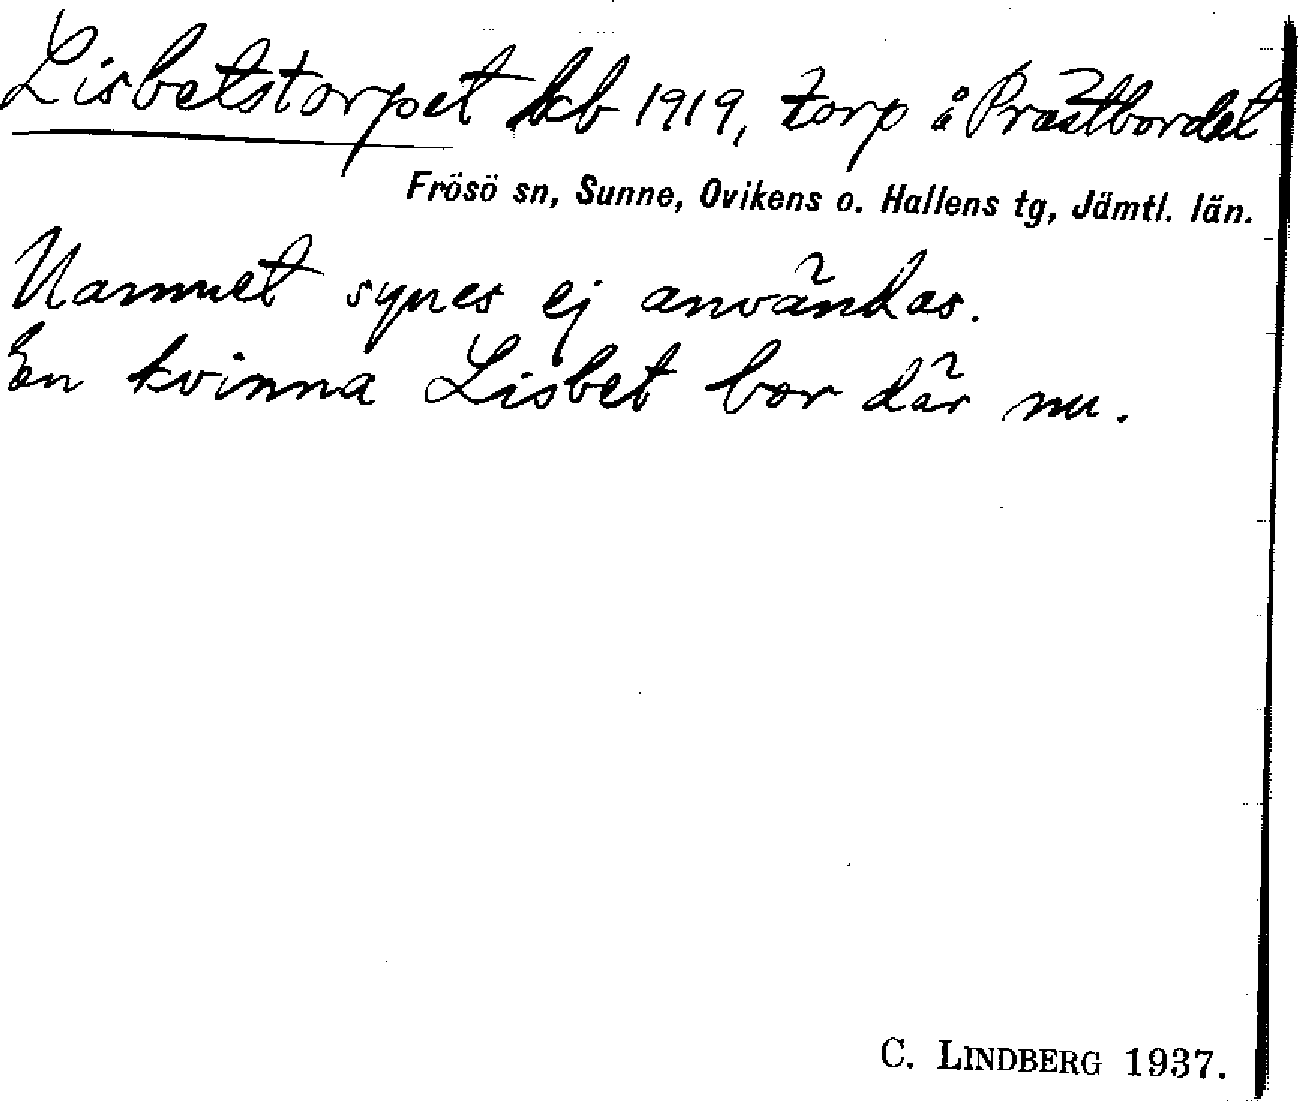 Lisbetstorpet kb 1919, torp å Prästbordet
Frösö sn, Sunne, Ovikens o. Hallens tg, Jämtl. län.
Namnet synes ej användas.
En kvinna Lisbet bor där nu.
C. LINDBERG 1937.